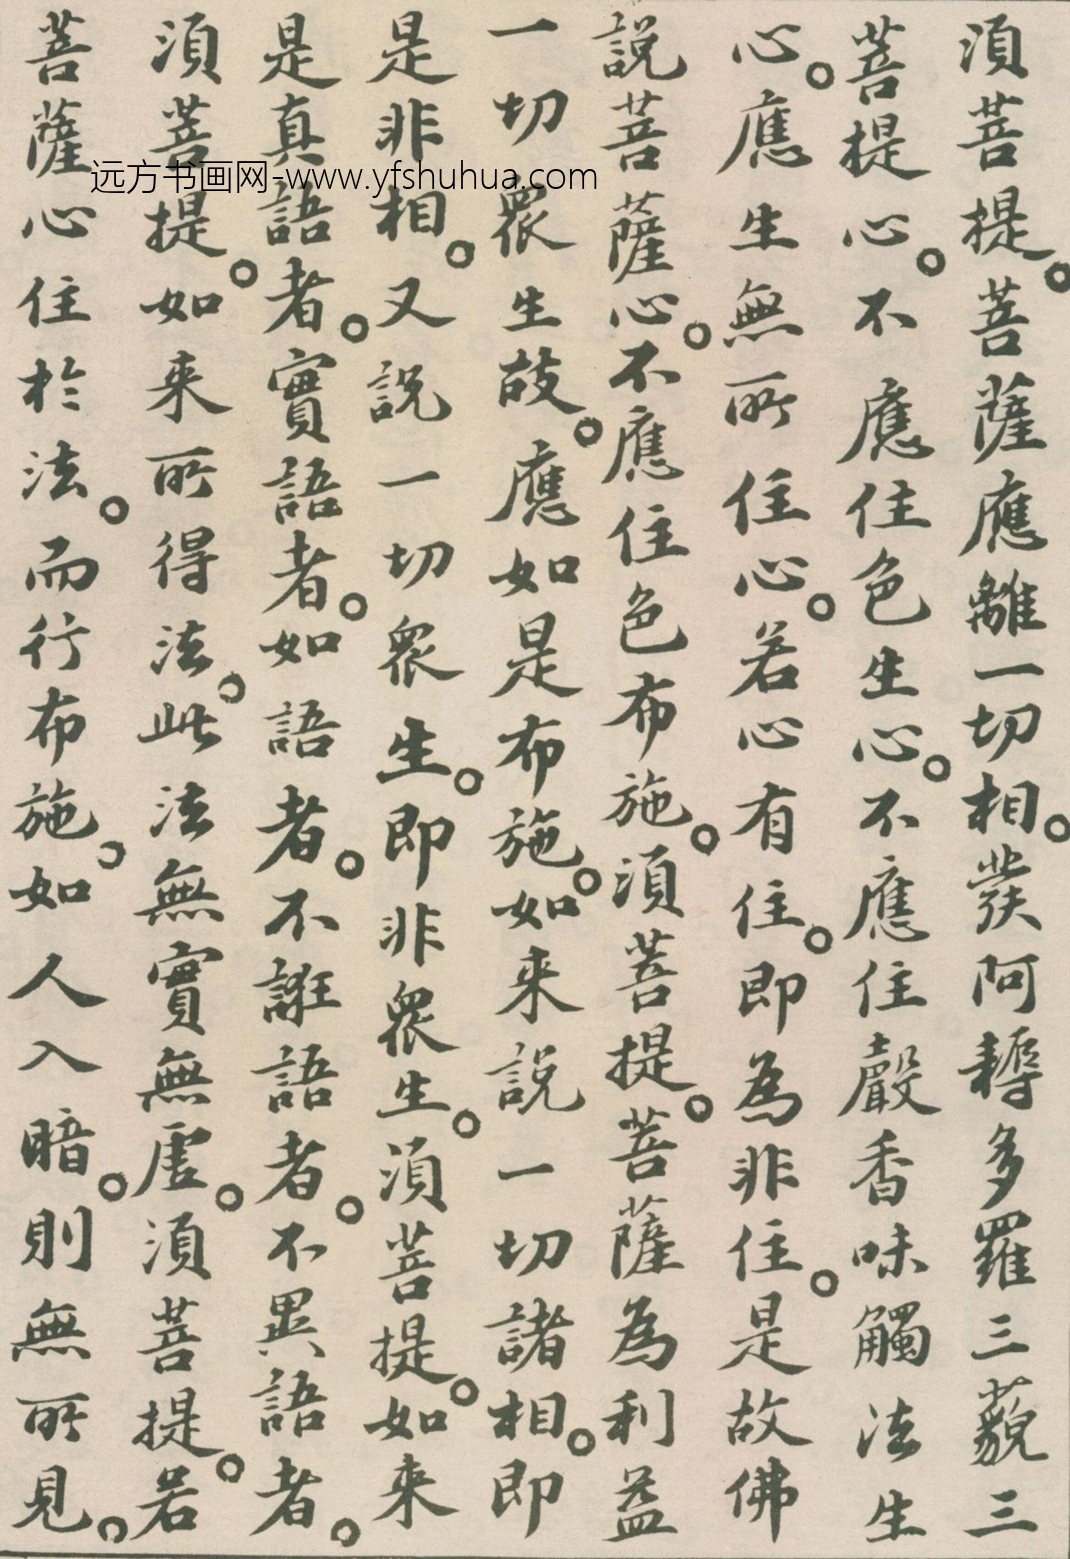 須菩提。菩薩應離一切相。發阿耨多羅三藐三
菩提心。不應住色生心。不應住聲香味觸法生
心。應生無所住心。若心有住。即為非住。是故佛
說菩薩心。不應住色布施。須菩提。菩薩為利益
一切眾生故。應如是布施。如来說一切諸相。即
是非相。又說一切眾生。即非眾生。須菩提。如来
是真語者。實語者。如語者。不誑語者。不異語者。
須菩提。如来所得法。此法無實無虛。須菩提。若
菩薩心住於法。而行布施。如人入暗。則無所見。
远方书画网-www.yfshuhua.com